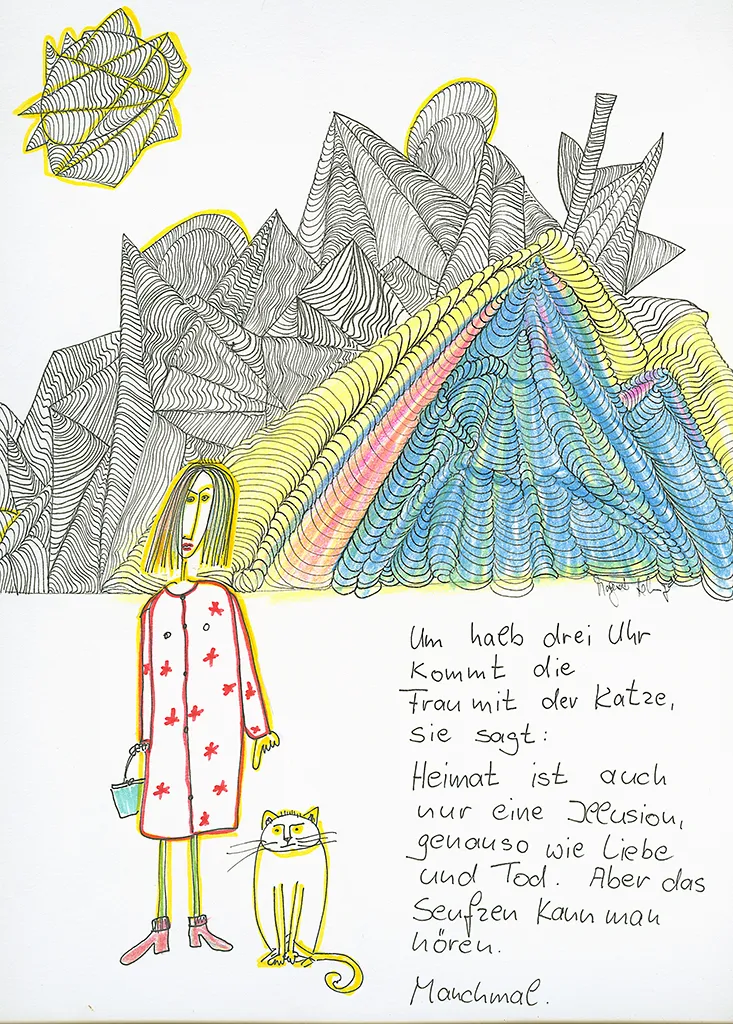 Um halb drei Uhr
kommt die
Frau mit der Katze,
sie sagt:
Heimat ist auch
nur eine Illusion,
genauso wie Liebe
und Tod. Aber das
Seufzen kann man
hören.
Manchmal.